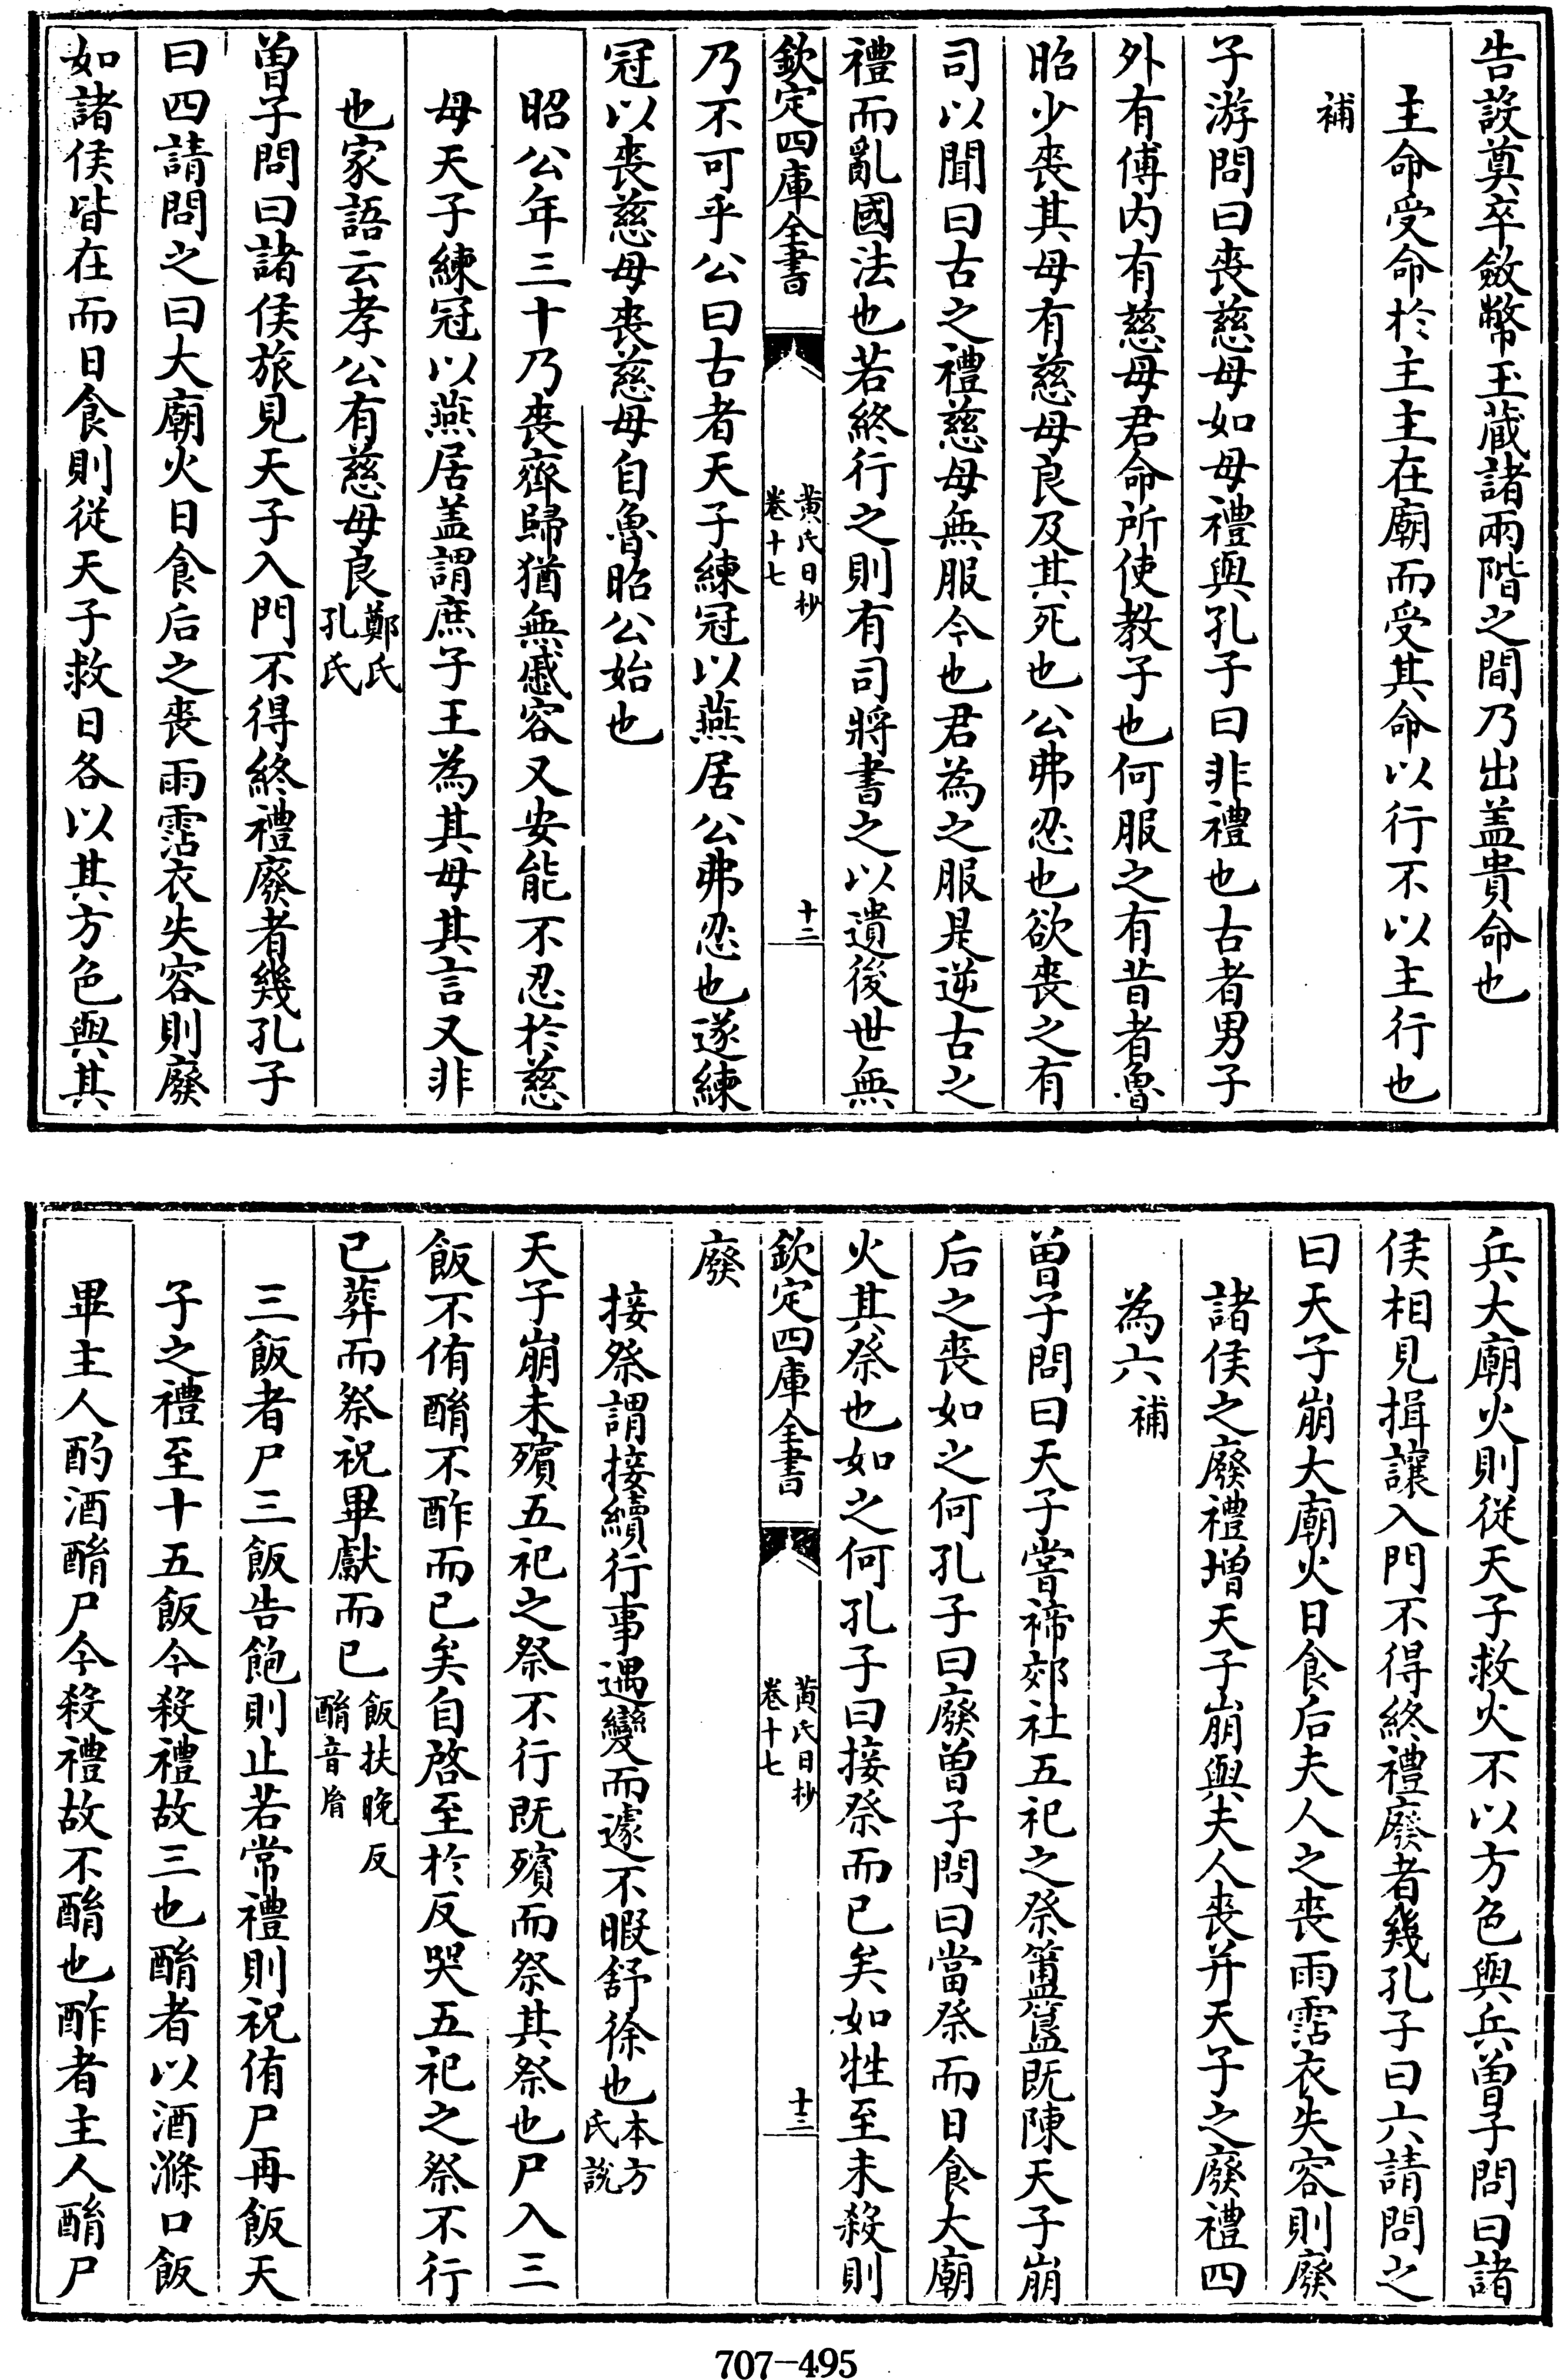 告設奠卒斂幣玉蔵諸兩階之間乃出盖貴命也
主命受命於主主在廟而受其命以行不以主行也
補
子游問曰喪慈母如母禮與孔子曰非禮也古者男子
外有傅内有慈母君命所使教子也何服之有昔者魯
昭少喪其母有慈母良及其死也公弗忍也欲喪之有
司以聞曰古之禮慈母無服今也君為之服是逆古之
禮而亂國法也若終行之則有司將書之以遺後世無
欽定四庫全書
黄氏日抄
卷十七
十二
乃不可乎公曰古者天子練冠以燕居公弗忍也遂練
冠以喪慈母喪慈母自魯昭公始也
昭公年三十乃喪齊歸猶無慼容又安能不忍於慈
母天子練冠以燕居盖謂庶子王為其母其言又非
也家語云孝公有慈母良鄭氏
孔氏
曽子問曰諸侯旅見天子入門不得終禮廢者幾孔子
曰四請問之曰大廟火日食后之喪雨霑衣失容則廢
如諸侯皆在而日食則從天子救日各以其方色與其
兵大廟火則從天子救火不以方色與兵曽子問曰諸
侯相見揖讓入門不得終禮廢者幾孔子曰六請問之
曰天子崩大廟火日食后夫人之喪雨霑衣失容則廢
諸侯之廢禮増天子崩與夫人喪并天子之廢禮四
為六補
曽子問曰天子嘗禘郊社五祀之祭簠簋既陳天子崩
后之喪如之何孔子曰廢曽子問曰當祭而日食大廟
火其祭也如之何孔子曰接祭而已矣如牲至未殺則
欽定四庫全書
黄氏日抄
卷十七
十三
廢
接祭謂接續行事遇變而遽不暇舒徐也本方
氏說
天子崩未殯五祀之祭不行既殯而祭其祭也尸入三
飯不侑酳不酢而已矣自啓至於反哭五祀之祭不行
已葬而祭祝畢獻而已飯扶晚反
酳音胤
三飯者尸三飯告飽則止若常禮則祝侑尸再飯天
子之禮至十五飯今殺禮故三也酳者以酒滌口飯
畢主人酌酒酳尸今殺禮故不酳也酢者主人酳尸
707-495